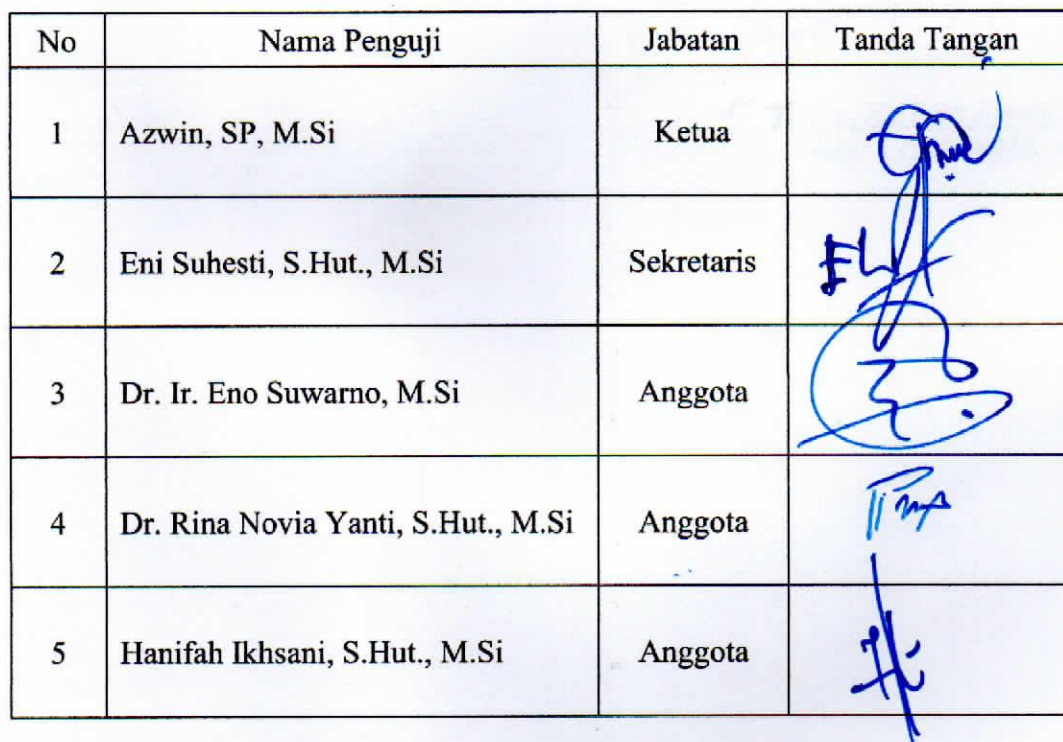 No Nama Penguji Jabatan Tanda Tangan
1 Azwin, SP, M.Si Ketua
2 Eni Suhesti, S.Hut., M.Si Sekretaris
3 Dr. Ir. Eno Suwarno, M.Si Anggota
4 Dr. Rina Novia Yanti, S.Hut., M.Si Anggota
5 Hanifah Ikhsani, S.Hut., M.Si Anggota